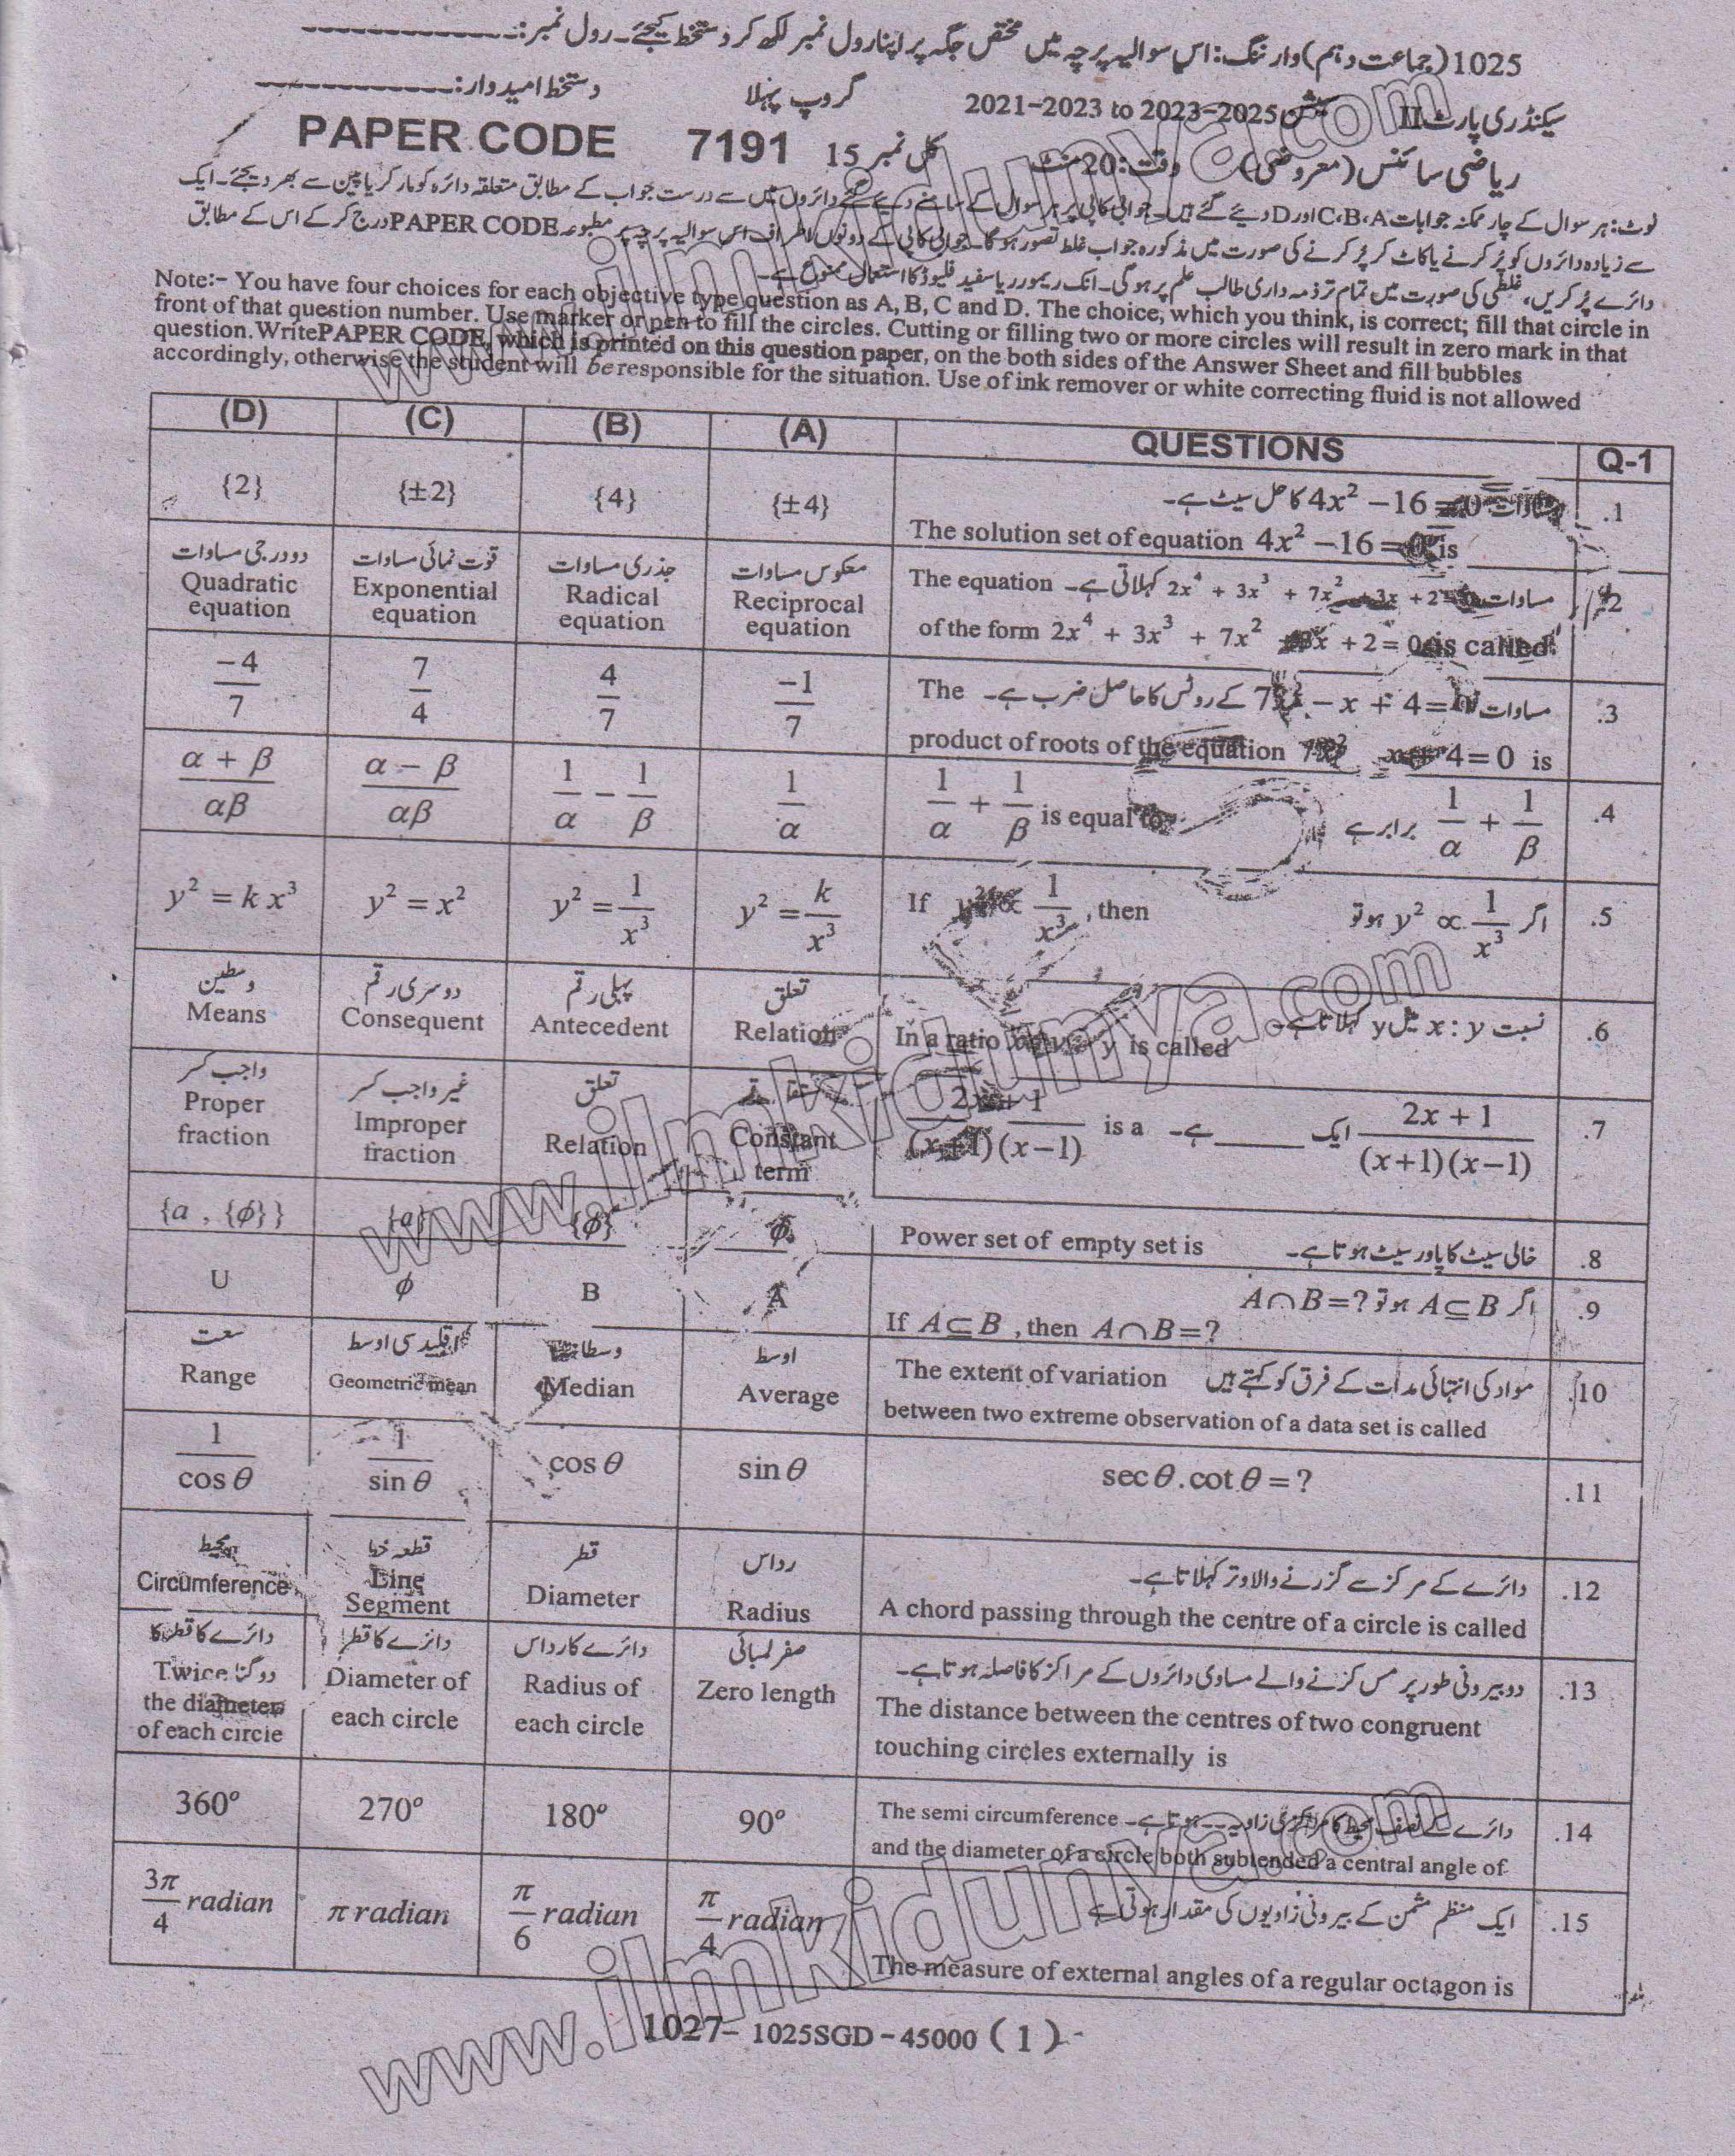 1025 (جماعت دہم) وارننگ: اس سوالیہ پرچہ میں مختص جگہ پر اپنا رول نمبر لکھ کر دستخط کیجئے۔ رول نمبر: -------------
سیکنڈری پارٹ II سیشن 2021-2023 to 2023-2025 گروپ پہلا دستخط امیدوار: -------------
ریاضی سائنس (معروضی) وقت: 20 منٹ کل نمبر 15 PAPER CODE 7191
نوٹ: ہر سوال کے چار ممکنہ جوابات C، B، A اور D دیئے گئے ہیں۔ جوابی کاپی پر ہر سوال کے سامنے دیئے گئے دائروں میں سے درست جواب کے مطابق متعلقہ دائرہ کو مارکر یا پین سے بھر دیجئے۔ ایک
سے زیادہ دائروں کو پُر کرنے یا کاٹ کر پُر کرنے کی صورت میں مذکورہ جواب غلط تصور ہوگا۔ جوابی کاپی کے دونوں اطراف اس سوالیہ پرچہ پر مطبوعہ PAPER CODE درج کر کے اس کے مطابق
دائرے پُر کریں، غلطی کی صورت میں تمام تر ذمہ داری طالب علم پر ہوگی۔ انک ریمور یا سفید فلیوڈ کا استعمال ممنوع ہے۔
Note:- You have four choices for each objective type question as A, B, C and D. The choice, which you think, is correct; fill that circle in
front of that question number. Use marker or pen to fill the circles. Cutting or filling two or more circles will result in zero mark in that
question. Write PAPER CODE, which is printed on this question paper, on the both sides of the Answer Sheet and fill bubbles
accordingly, otherwise the student will be responsible for the situation. Use of ink remover or white correcting fluid is not allowed
(D) (C) (B) (A) QUESTIONS Q-1
{2} {±2} {4} {±4} مساوات 4x² −16 = 0 کا حل سیٹ ہے۔ .1
The solution set of equation 4x² −16 = 0 is
دو درجی مساوات قوت نمائی مساوات جذری مساوات معکوس مساوات
Quadratic equation Exponential equation Radical equation Reciprocal equation
The equation مساوات 2x⁴ + 3x³ + 7x² 3x + 2 = کہلاتی ہے۔ .2
of the form 2x⁴ + 3x³ + 7x² 3x + 2 = 0 is called:
−4/7 7/4 4/7 −1/7 The مساوات 7x² − x + 4 = 0 کے روٹس کا حاصل ضرب ہے۔ .3
product of roots of the equation 7x² x + 4 = 0 is
α + β/αβ α − β/αβ 1/α − 1/β 1/α 1/α + 1/β is equal to 1/α + 1/β برابر ہے .4
y² = k x³ y² = x² y² = 1/x³ y² = k/x³ If y² ∝ 1/x³, then اگر y² ∝ 1/x³ ہو تو .5
وسطین دوسری رقم پہلی رقم تعلق
Means Consequent Antecedent Relation
نسبت x : y میں y کہلاتا ہے۔ .6
In a ratio y is called
واجب کسر غیر واجب کسر تعلق
Proper fraction Improper fraction Relation Constant term
2x + 1/(x+1)(x−1) is a 2x + 1/(x+1)(x−1) ایک ______ ہے۔ .7
{a , {ϕ}} {a} {ϕ} ϕ Power set of empty set is خالی سیٹ کا پاور سیٹ ہوتا ہے۔ .8
U ϕ B A اگر A⊆B ہو تو A∩B=? .9
If A⊆B , then A∩B=?
سعت اقلیدسی اوسط وسطانیہ اوسط
Range Geometric mean Median Average
The extent of variation مواد کی انتہائی مدات کے فرق کو کہتے ہیں .10
between two extreme observation of a data set is called
1/cos θ 1/sin θ cos θ sin θ sec θ . cot θ = ? .11
محیط قطعہ خط قطر رداس
Circumference Line Segment Diameter Radius
دائرے کے مرکز سے گزرنے والا وتر کہلاتا ہے۔ .12
A chord passing through the centre of a circle is called
دائرے کا قطر کا دوگنا دائرے کا قطر دائرے کا رداس صفر لمبائی
Twice the diameter of each circle Diameter of each circle Radius of each circle Zero length
دو بیرونی طور پر مس کرنے والے مساوی دائروں کے مراکز کا فاصلہ ہوتا ہے۔ .13
The distance between the centres of two congruent
touching circles externally is
360° 270° 180° 90° The semi circumference دائرے کے نصف محیط کا مرکزی زاویہ --- ہوتا ہے۔ .14
and the diameter of a circle both subtended a central angle of
3π/4 radian π radian π/6 radian π/4 radian ایک منظم مثمن کے بیرونی زاویوں کی مقدار ہوتی ہے .15
The measure of external angles of a regular octagon is
1027- 1025SGD - 45000 ( 1 ) -
www.ilmkidunya.com
www.ilmkidunya.com
www.ilmkidunya.com